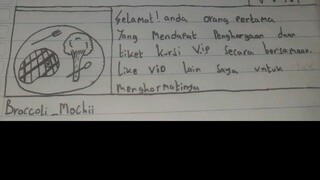 Selamat! anda orang pertama
Yang Mendapat Penghargaan dan
tiket kursi Vip Secara bersamaan.
Like vid lain saya untuk
menghormatinya
Broccoli_Mochii